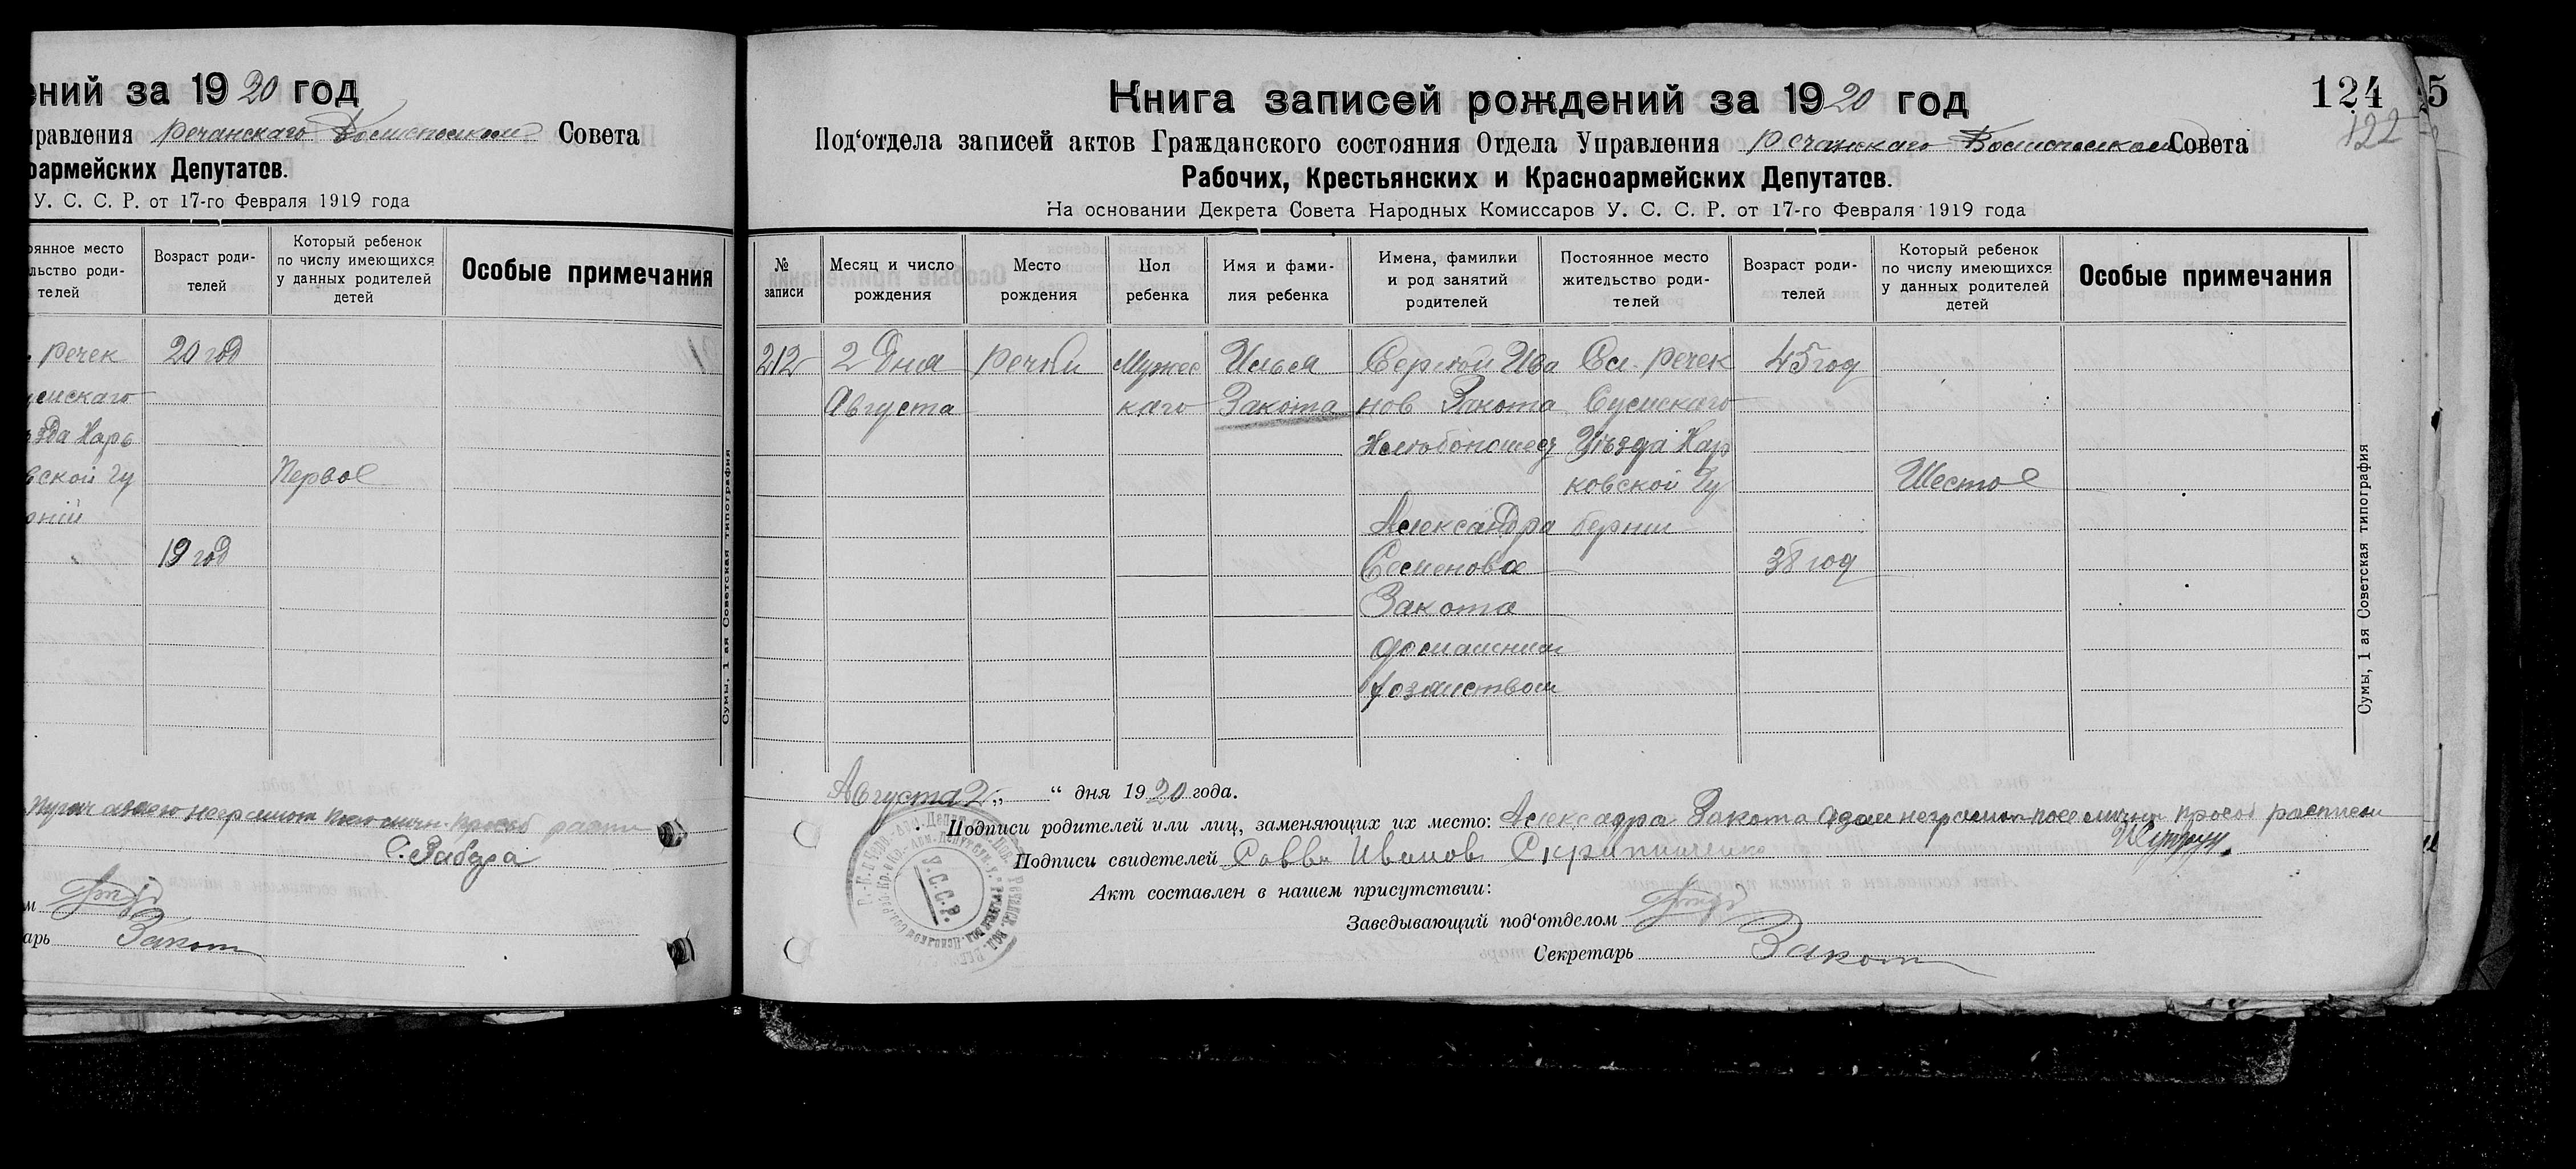 ений за 1920 год
правления Речанскаго Волисполком Совета
оармейских Депутатов.
У. С. С. Р. от 17-го Февраля 1919 года
оянное место
льство роди-
телей
Возраст роди-
телей
Который ребенок
по числу имеющихся
у данных родителей
детей
Особые примечания
Речек 20 год
умскаго
зда Харь
вской гу Первое
рнии
19 год
Сумы, 1 ая Советская типография
С. Забуга
арь Закот
124
5
122
Книга записей рождений за 1920 год
Под‘отдела записей актов Гражданского состояния Отдела Управления Речанскаго Волисполком Совета
Рабочих, Крестьянских и Красноармейских Депутатов.
На основании Декрета Совета Народных Комиссаров У. С. С. Р. от 17-го Февраля 1919 года
№
записи
Месяц и число
рождения
Место
рождения
Пол
ребенка
Имя и фами-
лия ребенка
Имена, фамилии
и род занятий
родителей
Постоянное место
жительство роди-
телей
Возраст роди-
телей
Который ребенок
по числу имеющихся
у данных родителей
детей
Особые примечания
212 2 дня Речки Мужес Илья Сергей Ива Сл. Речек 45 год
Августа каго Закота нов Закота Сумскаго
Хлебопашец Уъзда Хар
ковской Гу Шестое
Александра бернии
Семенова 38 год
Закота
домашним
хозяиством
Сумы, 1 ая Советская типография
Августа 2 „ “ дня 1920 года.
Подписи родителей или лиц, заменяющих их место: Александра Закота
Подписи свидетелей Савва Иванов Скрипниченко
Акт составлен в нашем присутствии:
Заведывающий под‘отделом
Секретарь Закот
У. С. С. Р.